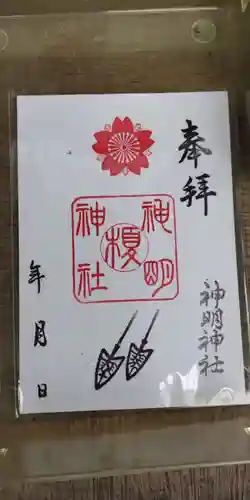 奉拝
神明神社
榎
神明
榎
神社
年月日